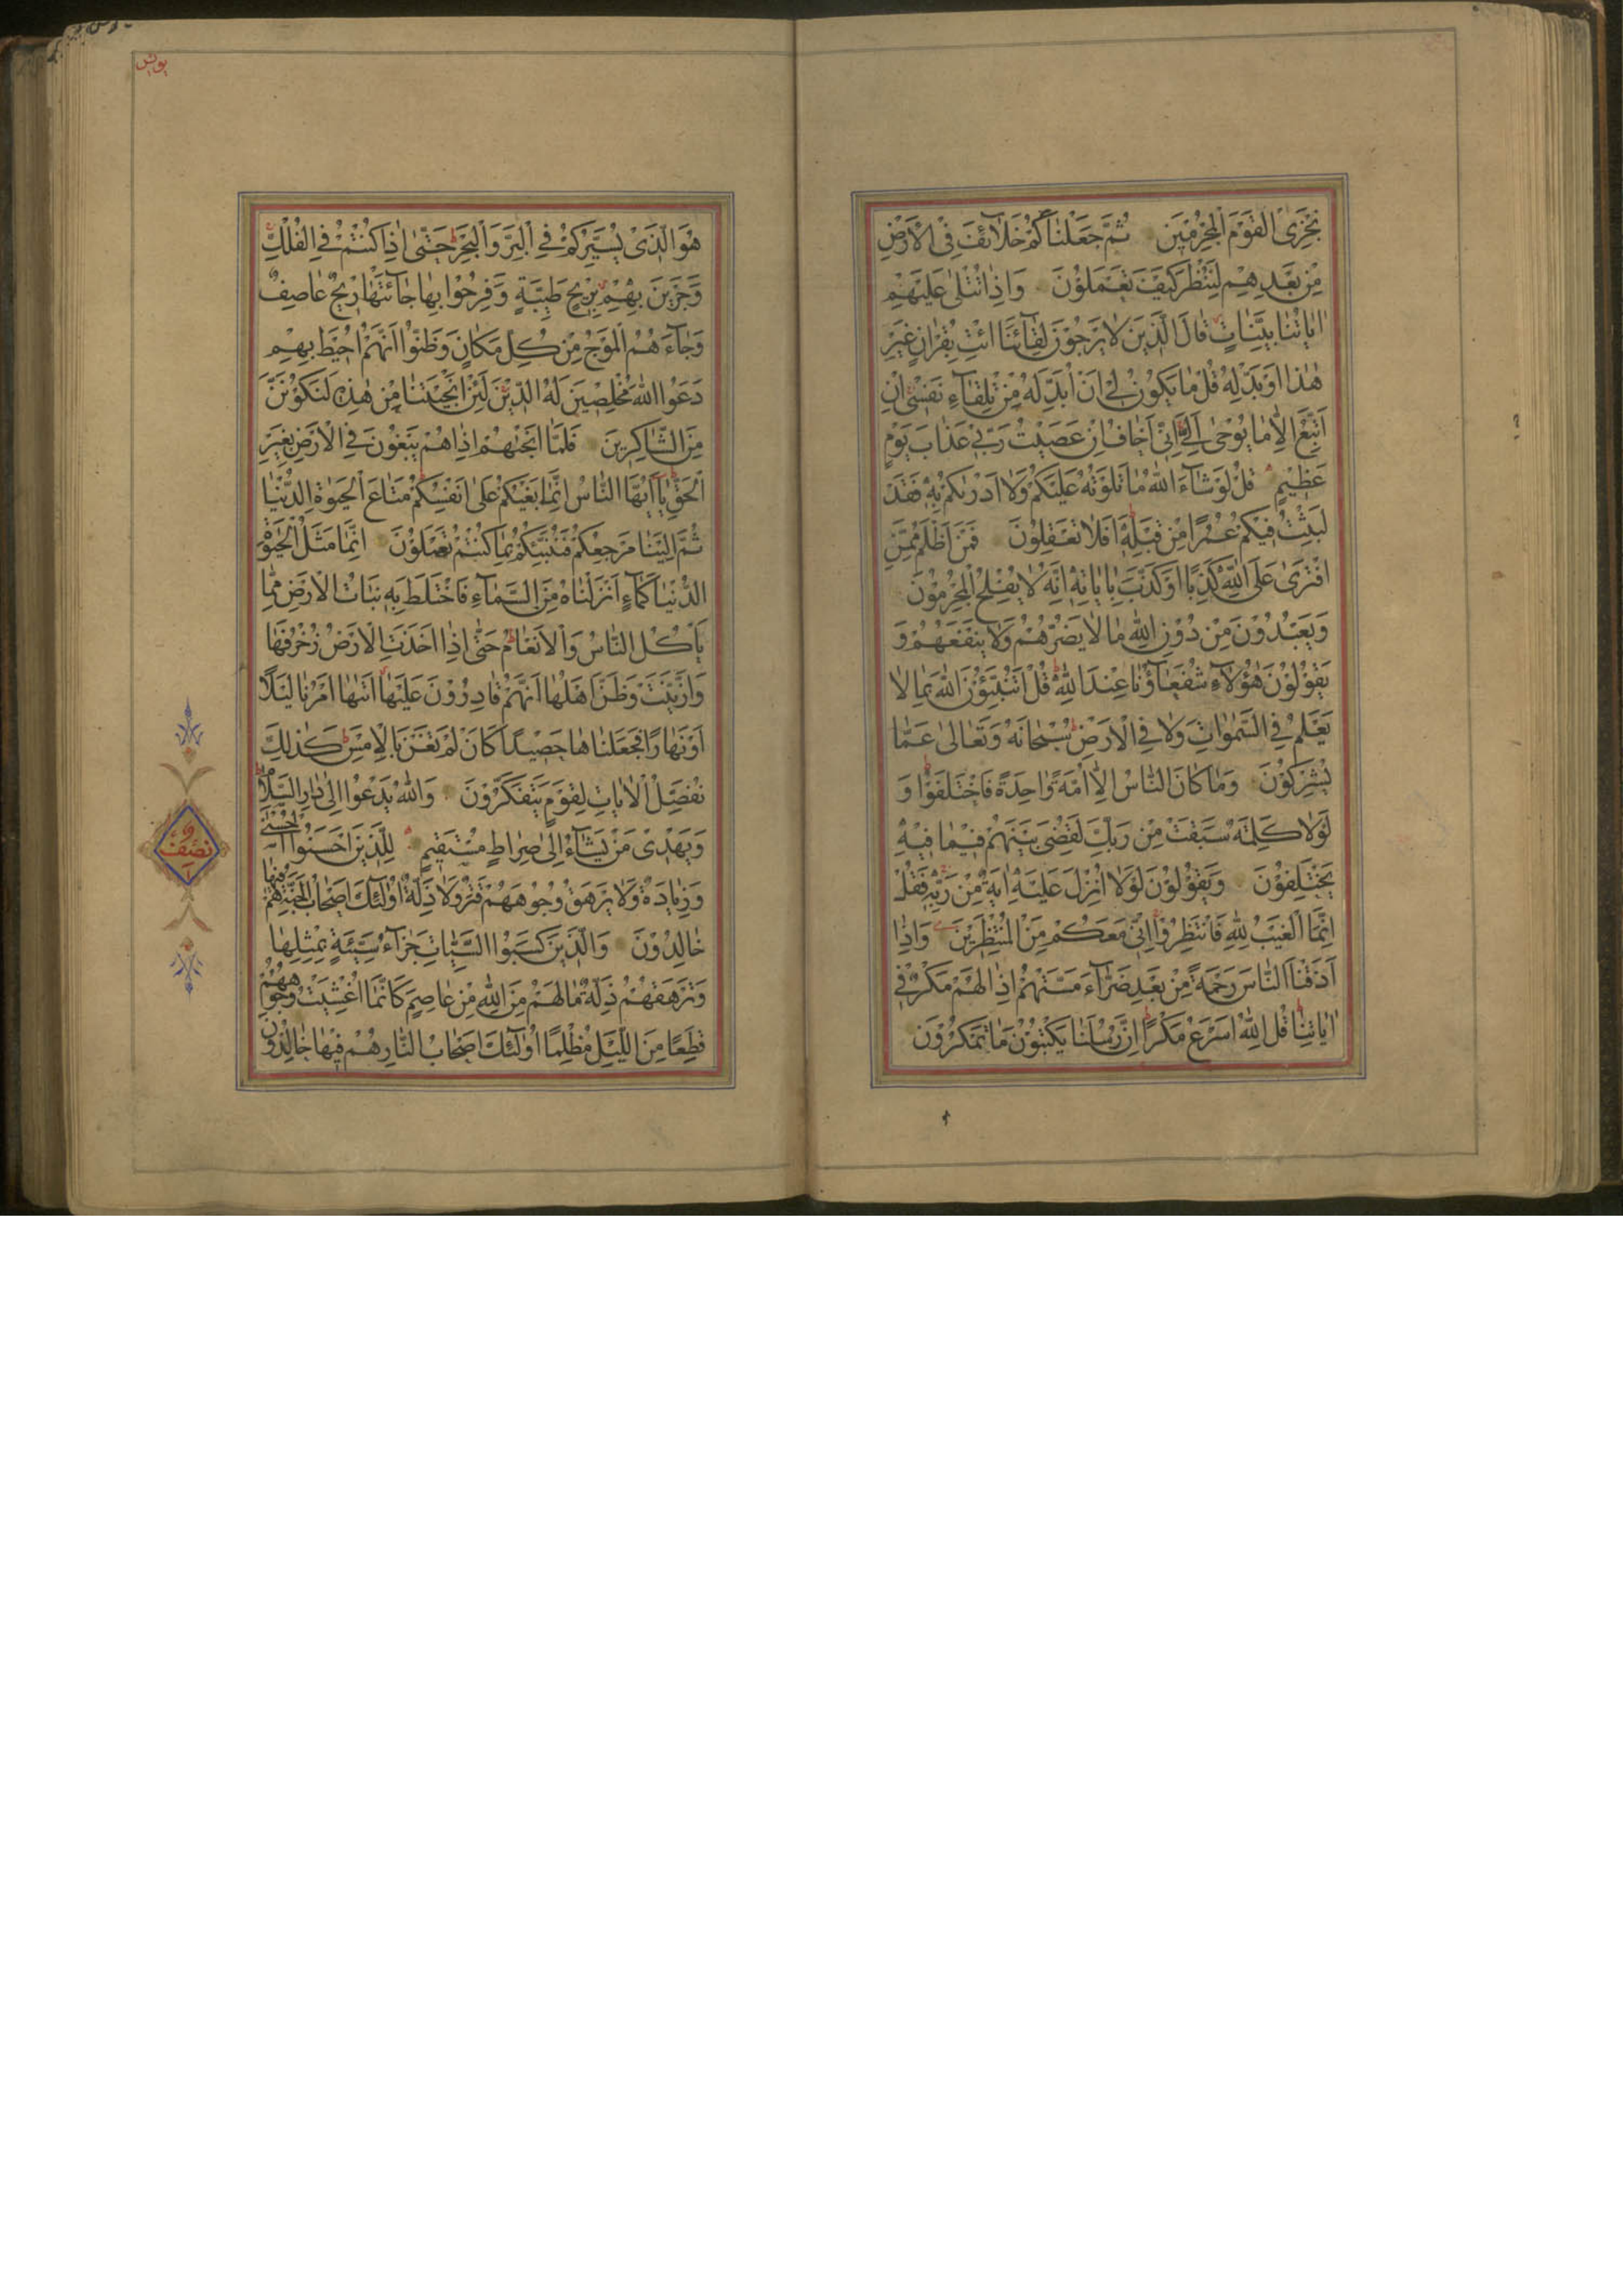 نَجْزِى الْقَوْمَ الْمُجْرِمِينَ ثُمَّ جَعَلْنَاكُمْ خَلَائِفَ فِى الْاَرْضِ
مِنْ بَعْدِهِمْ لِنَنْظُرَ كَيْفَ تَعْمَلُوْنَ وَاِذَا تُتْلٰى عَلَيْهِمْ
اٰيَاتُنَا بَيِّنَاتٍ قَالَ الَّذِيْنَ لَا يَرْجُوْنَ لِقَآئَنَا ائْتِ بِقُرْاٰنٍ غَيْرِ
هٰذَا اَوْ بَدِّلْهُ قُلْ مَا يَكُوْنُ لِىْ اَنْ اُبَدِّلَهُ مِنْ تِلْقَآءِ نَفْسِىْ اِنْ
اَتَّبِعُ اِلَّا مَا يُوْحٰى اِلَىَّ اِنِّىْ اَخَافُ اِنْ عَصَيْتُ رَبِّىْ عَذَابَ يَوْمٍ
عَظِيْمٍ قُلْ لَوْ شَآءَ اللّٰهُ مَا تَلَوْتُهُ عَلَيْكُمْ وَلَا اَدْرٰىكُمْ بِهٖ فَقَدْ
لَبِثْتُ فِيْكُمْ عُمُرًا مِنْ قَبْلِهٖ اَفَلَا تَعْقِلُوْنَ فَمَنْ اَظْلَمُ مِمَّنِ
افْتَرٰى عَلَى اللّٰهِ كَذِبًا اَوْ كَذَّبَ بِاٰيَاتِهٖ اِنَّهُ لَا يُفْلِحُ الْمُجْرِمُوْنَ
وَيَعْبُدُوْنَ مِنْ دُوْنِ اللّٰهِ مَا لَا يَضُرُّهُمْ وَلَا يَنْفَعُهُمْ وَ
يَقُوْلُوْنَ هٰؤُلَآءِ شُفَعَآؤُنَا عِنْدَ اللّٰهِ قُلْ اَتُنَبِّئُوْنَ اللّٰهَ بِمَا لَا
يَعْلَمُ فِى السَّمٰوَاتِ وَلَا فِى الْاَرْضِ سُبْحَانَهُ وَتَعَالٰى عَمَّا
يُشْرِكُوْنَ وَمَا كَانَ النَّاسُ اِلَّا اُمَّةً وَاحِدَةً فَاخْتَلَفُوْا وَ
لَوْلَا كَلِمَةٌ سَبَقَتْ مِنْ رَبِّكَ لَقُضِىَ بَيْنَهُمْ فِيْمَا فِيْهِ
يَخْتَلِفُوْنَ وَيَقُوْلُوْنَ لَوْلَا اُنْزِلَ عَلَيْهِ اٰيَةٌ مِنْ رَبِّهٖ فَقُلْ
اِنَّمَا الْغَيْبُ لِلّٰهِ فَانْتَظِرُوْا اِنِّىْ مَعَكُمْ مِنَ الْمُنْتَظِرِيْنَ وَاِذَا
اَذَقْنَا النَّاسَ رَحْمَةً مِنْ بَعْدِ ضَرَّآءَ مَسَّتْهُمْ اِذَا لَهُمْ مَكْرٌ فِىْ
اٰيَاتِنَا قُلِ اللّٰهُ اَسْرَعُ مَكْرًا اِنَّ رُسُلَنَا يَكْتُبُوْنَ مَا تَمْكُرُوْنَ
يونس
هُوَ الَّذِىْ يُسَيِّرُكُمْ فِى الْبَرِّ وَالْبَحْرِ حَتّٰى اِذَا كُنْتُمْ فِى الْفُلْكِ
وَجَرَيْنَ بِهِمْ بِرِيْحٍ طَيِّبَةٍ وَفَرِحُوْا بِهَا جَآئَتْهَا رِيْحٌ عَاصِفٌ
وَجَآءَهُمُ الْمَوْجُ مِنْ كُلِّ مَكَانٍ وَظَنُّوْا اَنَّهُمْ اُحِيْطَ بِهِمْ
دَعَوُا اللّٰهَ مُخْلِصِيْنَ لَهُ الدِّيْنَ لَئِنْ اَنْجَيْتَنَا مِنْ هٰذِهٖ لَنَكُوْنَنَّ
مِنَ الشَّاكِرِيْنَ فَلَمَّا اَنْجٰىهُمْ اِذَا هُمْ يَبْغُوْنَ فِى الْاَرْضِ بِغَيْرِ
الْحَقِّ يَا اَيُّهَا النَّاسُ اِنَّمَا بَغْيُكُمْ عَلٰى اَنْفُسِكُمْ مَتَاعَ الْحَيٰوةِ الدُّنْيَا
ثُمَّ اِلَيْنَا مَرْجِعُكُمْ فَنُنَبِّئُكُمْ بِمَا كُنْتُمْ تَعْمَلُوْنَ اِنَّمَا مَثَلُ الْحَيٰوةِ
الدُّنْيَا كَمَآءٍ اَنْزَلْنَاهُ مِنَ السَّمَآءِ فَاخْتَلَطَ بِهٖ نَبَاتُ الْاَرْضِ مِمَّا
يَأْكُلُ النَّاسُ وَالْاَنْعَامُ حَتّٰى اِذَا اَخَذَتِ الْاَرْضُ زُخْرُفَهَا
وَازَّيَّنَتْ وَظَنَّ اَهْلُهَا اَنَّهُمْ قَادِرُوْنَ عَلَيْهَا اَتٰىهَا اَمْرُنَا لَيْلًا
اَوْ نَهَارًا فَجَعَلْنَاهَا حَصِيْدًا كَاَنْ لَمْ تَغْنَ بِالْاَمْسِ كَذٰلِكَ
نُفَصِّلُ الْاٰيَاتِ لِقَوْمٍ يَتَفَكَّرُوْنَ وَاللّٰهُ يَدْعُوْا اِلٰى دَارِ السَّلَامِ
وَيَهْدِىْ مَنْ يَشَآءُ اِلٰى صِرَاطٍ مُسْتَقِيْمٍ لِلَّذِيْنَ اَحْسَنُوْا الْحُسْنٰى
وَزِيَادَةٌ وَلَا يَرْهَقُ وُجُوْهَهُمْ قَتَرٌ وَلَا ذِلَّةٌ اُوْلٰئِكَ اَصْحَابُ الْجَنَّةِ هُمْ فِيْهَا
خَالِدُوْنَ وَالَّذِيْنَ كَسَبُوْا السَّيِّئَاتِ جَزَآءُ سَيِّئَةٍ بِمِثْلِهَا
وَتَرْهَقُهُمْ ذِلَّةٌ مَا لَهُمْ مِنَ اللّٰهِ مِنْ عَاصِمٍ كَاَنَّمَا اُغْشِيَتْ وُجُوْهُهُمْ
قِطَعًا مِنَ اللَّيْلِ مُظْلِمًا اُوْلٰئِكَ اَصْحَابُ النَّارِ هُمْ فِيْهَا خَالِدُوْنَ
نصف